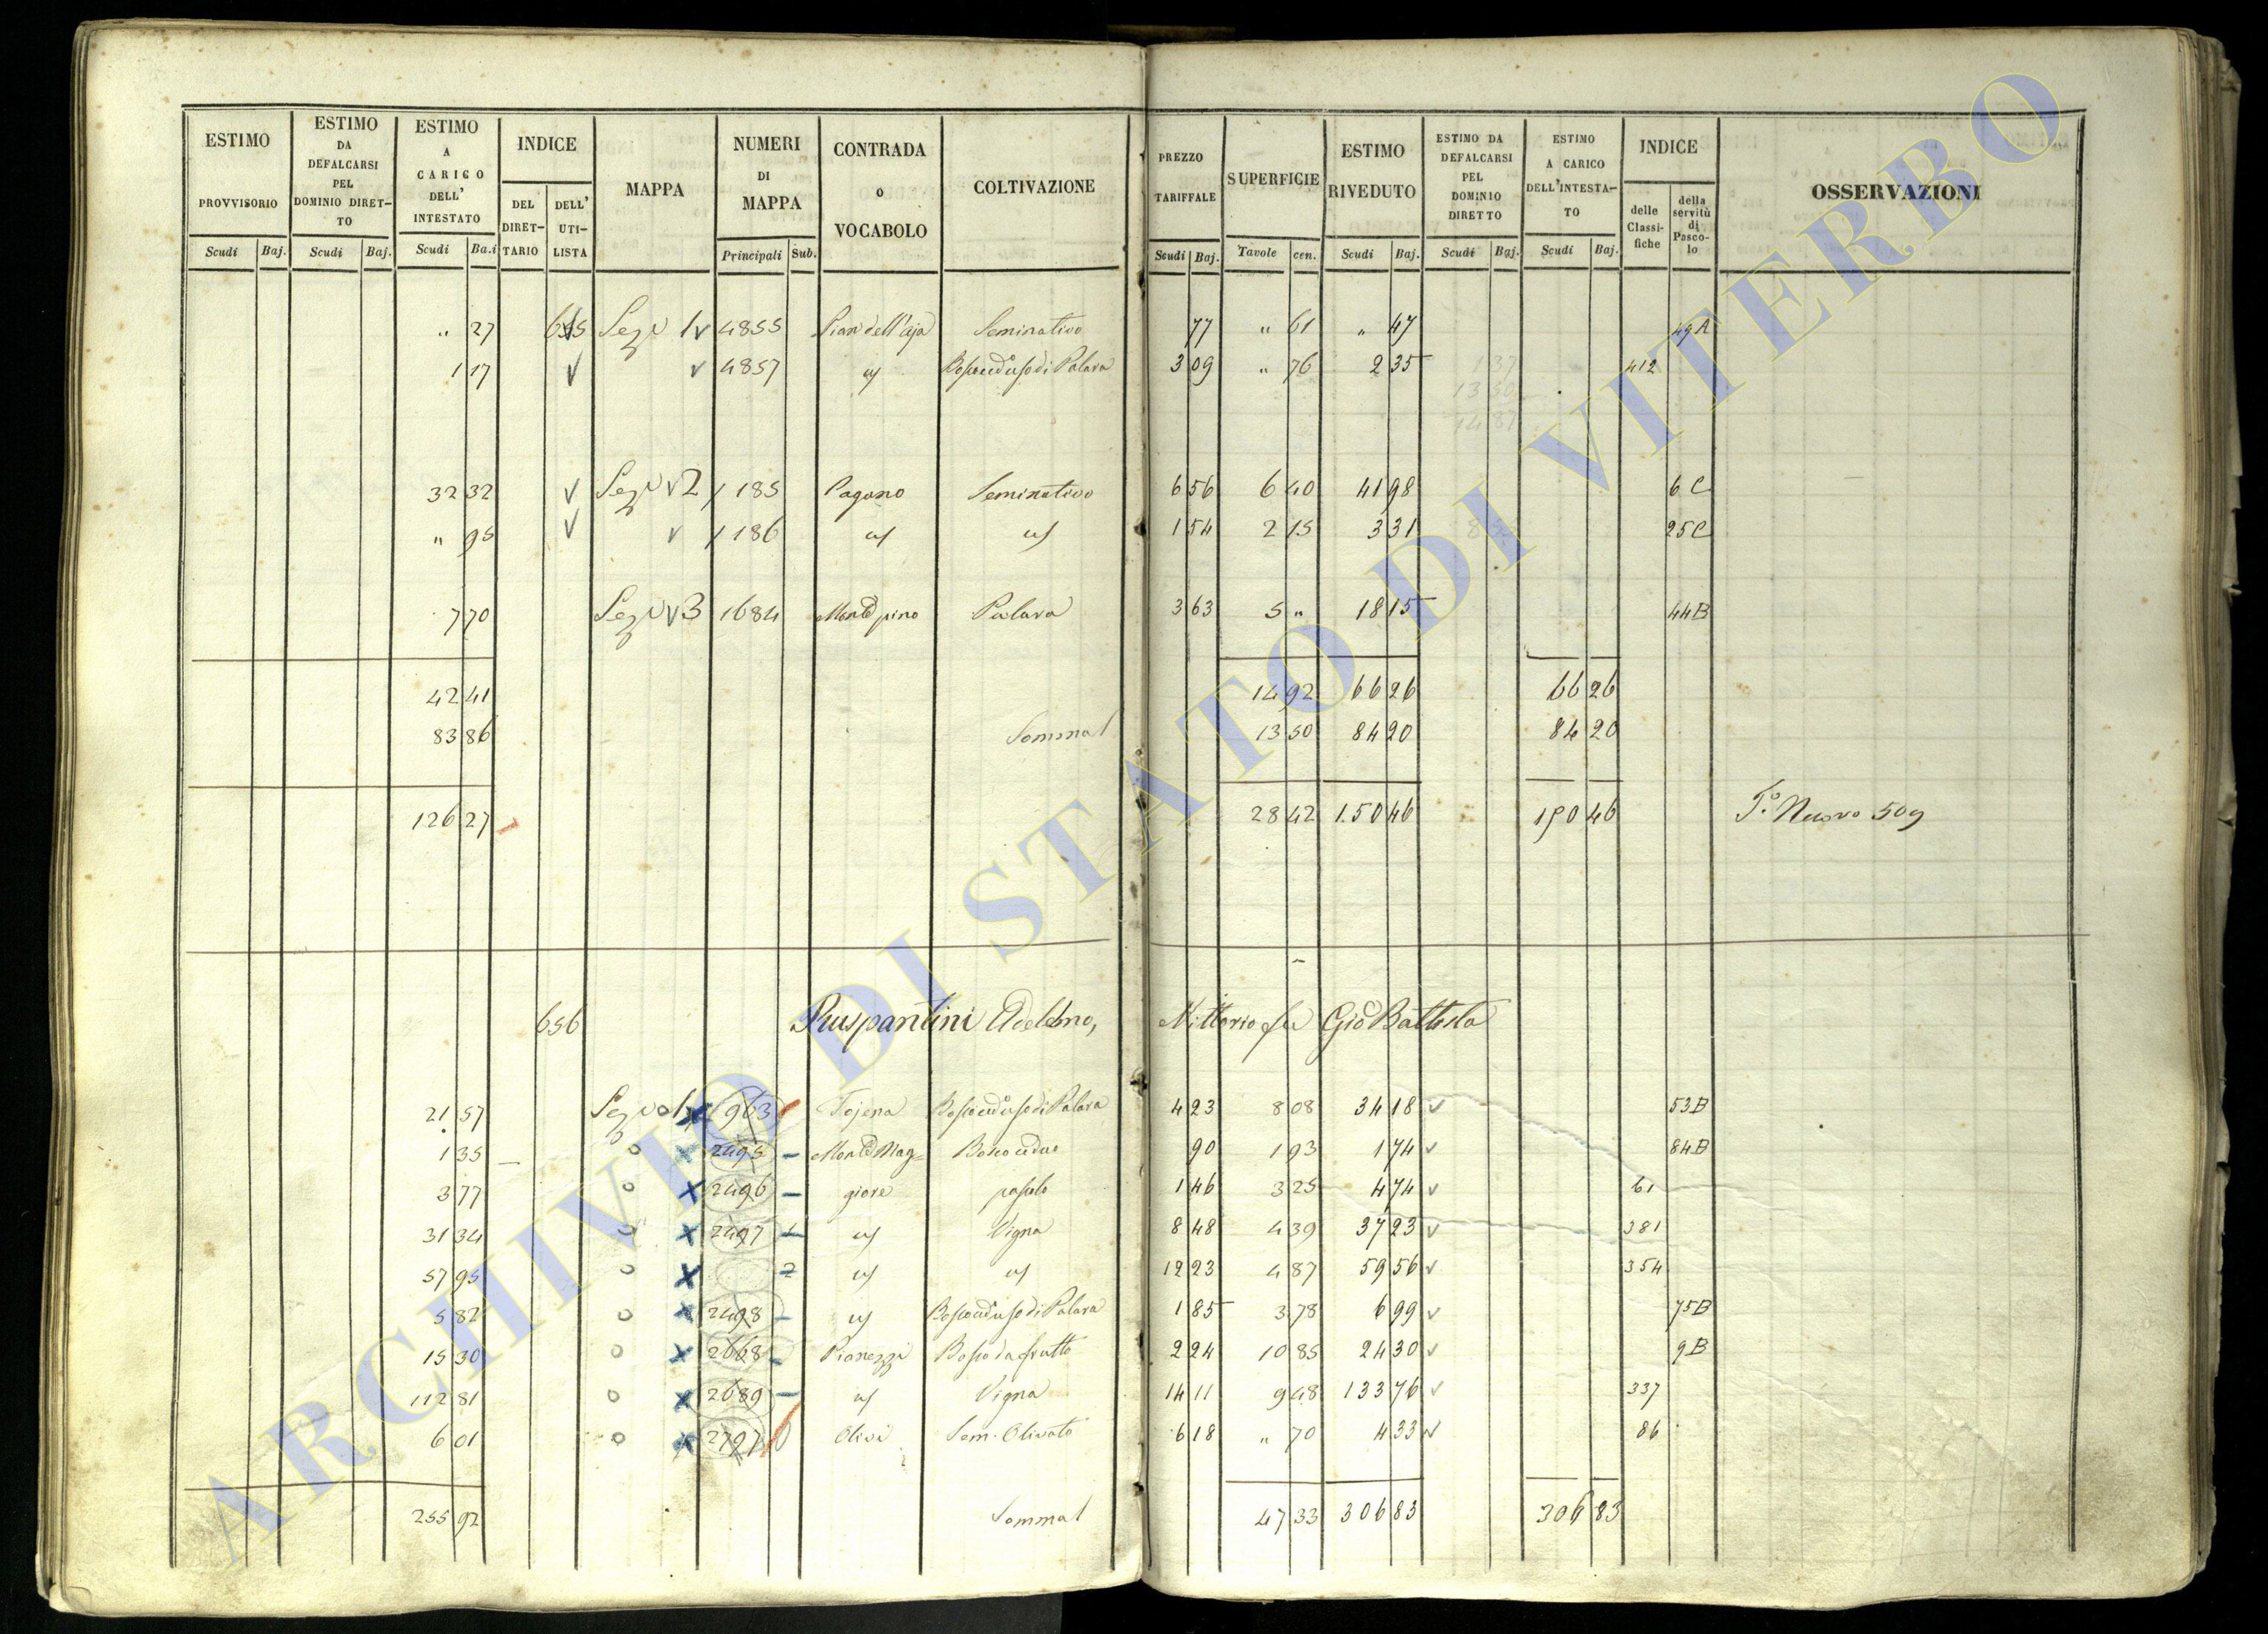 ESTIMO PROVVISORIO Scudi Baj.
ESTIMO DA DEFALCARSI PEL DOMINIO DIRET-TO Scudi Baj.
ESTIMO A CARICO DELL' INTESTATO Scudi Ba.i
INDICE DEL DIRET-TARIO DELL' UTI-LISTA
MAPPA
NUMERI DI MAPPA Principali Sub.
CONTRADA O VOCABOLO
COLTIVAZIONE
PREZZO TARIFFALE Scudi Baj.
SUPERFICIE Tavole cen.
ESTIMO RIVEDUTO Scudi Baj.
ESTIMO DA DEFALCARSI PEL DOMINIO DIRETTO Scudi Baj.
ESTIMO A CARICO DELL'INTESTA-TO Scudi Baj.
INDICE delle Classi-fiche della servitù di Pasco-lo
OSSERVAZIONI
" 27 655 Sezne 1 4855 Pian dell'aja Seminativo 77 " 61 " 47 49A
1 17 4857 id Bosco ceduo sodi Palara 3 09 " 76 2 35 1 37 412
13 50
14 87
32 32 Sezne 2 185 Pagano Seminativo 6 56 6 40 41 98 6 C
" 95 186 id id 1 54 2 15 3 31 25 C
7 70 Sezne 3 1684 Monte pino Palara 3 63 5 " 18 15 44B
42 41 14 92 66 26 66 26
83 86 Somma 13 50 84 20 84 20
126 27 28 42 150 46 150 46 To. Nuovo 509
656 Ruspantini Adelmo, Vittorio fu Gio Battista
21 57 Sezne 1 963 Tojena Bosco ceduo sodi Palara 4 23 8 08 34 18 53B
1 35 2495 Monte Mag= Bosco ceduo 90 1 93 1 74 84B
3 77 2496 giore pascolo 1 46 3 25 4 74 61
31 34 2497 1 id Vigna 8 48 4 39 37 23 381
57 95 2 id id 12 23 4 87 59 56 354
5 82 2498 id Bosco ceduo sodi Palara 1 85 3 78 6 99 75B
15 30 2668 Pianezzi Bosco da frutto 2 24 10 85 24 30 9B
112 81 2689 id Vigna 14 11 9 48 133 76 337
6 01 2797 Olivi Sem. Olivato 6 18 " 70 4 33 86
255 92 Somma 47 33 306 83 306 83
ARCHIVIO DI STATO DI VITERBO